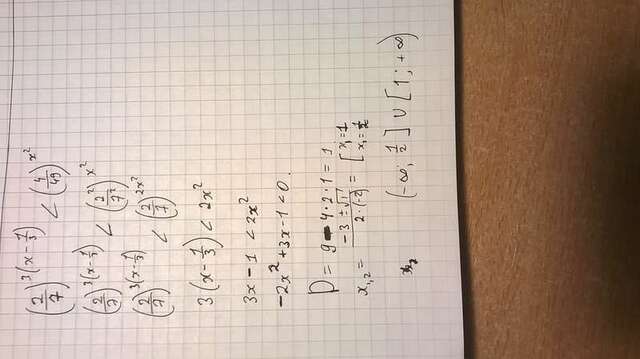 (2/7)^3(x-1/3) < (4/49)^x²
(2/7)^3(x-1/3) < (2/7)^2x²
(2/7)^3(x-1/3) < (2/7)^2x²
3(x-1/3) < 2x²
3x-1 < 2x²
-2x²+3x-1<0.
D = 9-4·2·1=1
x₁,₂ = (-3±√1)/(2·(-2)) = [x₁=1 x₁=1/2
(-∞; 1/2] ∪ [1; +∞)